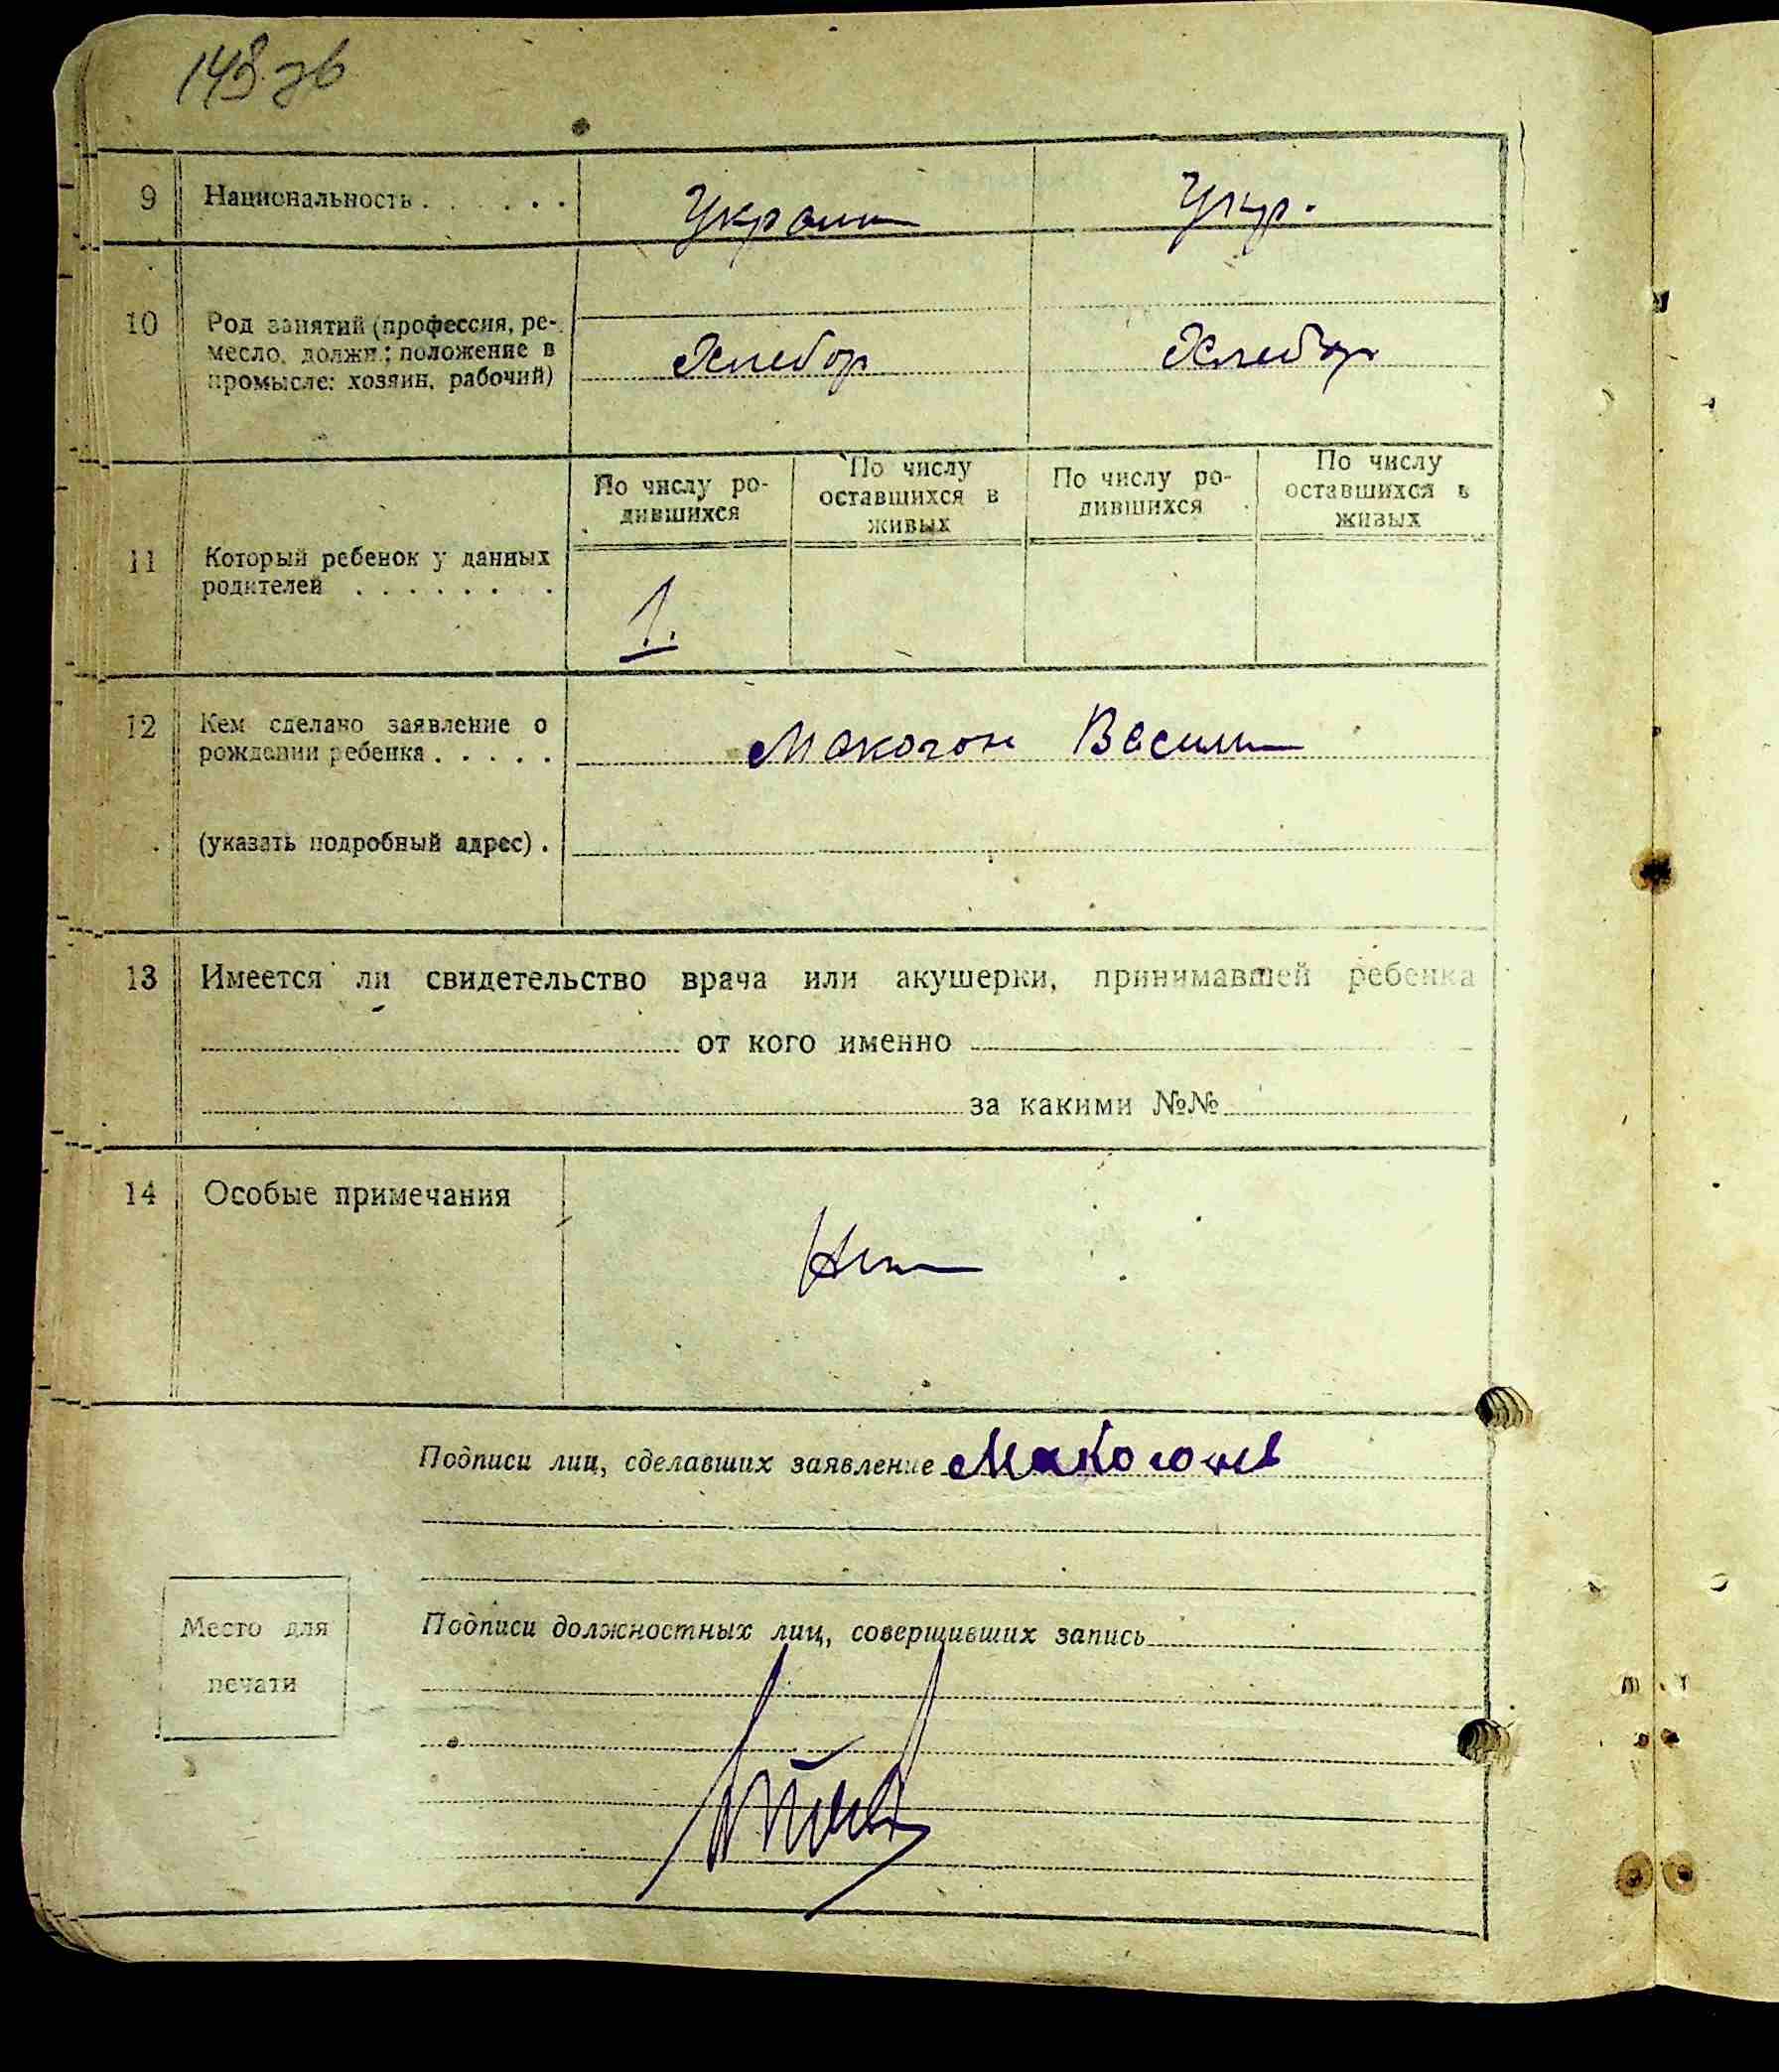 148 зв
9 Национальность . . . . . . Украин Укр.
10 Род занятий (профессия, ре-
месло, должн.; положение в
промысле: хозяин, рабочий)
Хлебор Хлебор
По числу ро-
дившихся
По числу
оставшихся в
живых
По числу ро-
дившихся
По числу
оставшихся в
живых
11 Который ребенок у данных
родителей . . . . . . . .
1.
12 Кем сделано заявление о
рождении ребенка . . . . .
Макогон Васили
(указать подробный адрес) .
13 Имеется ли свидетельство врача или акушерки, принимавшей ребенка
от кого именно
за какими №№
14 Особые примечания
Нет
Подписи лиц, сделавших заявление Макогон
Место для
печати
Подписи должностных лиц, совершивших запись